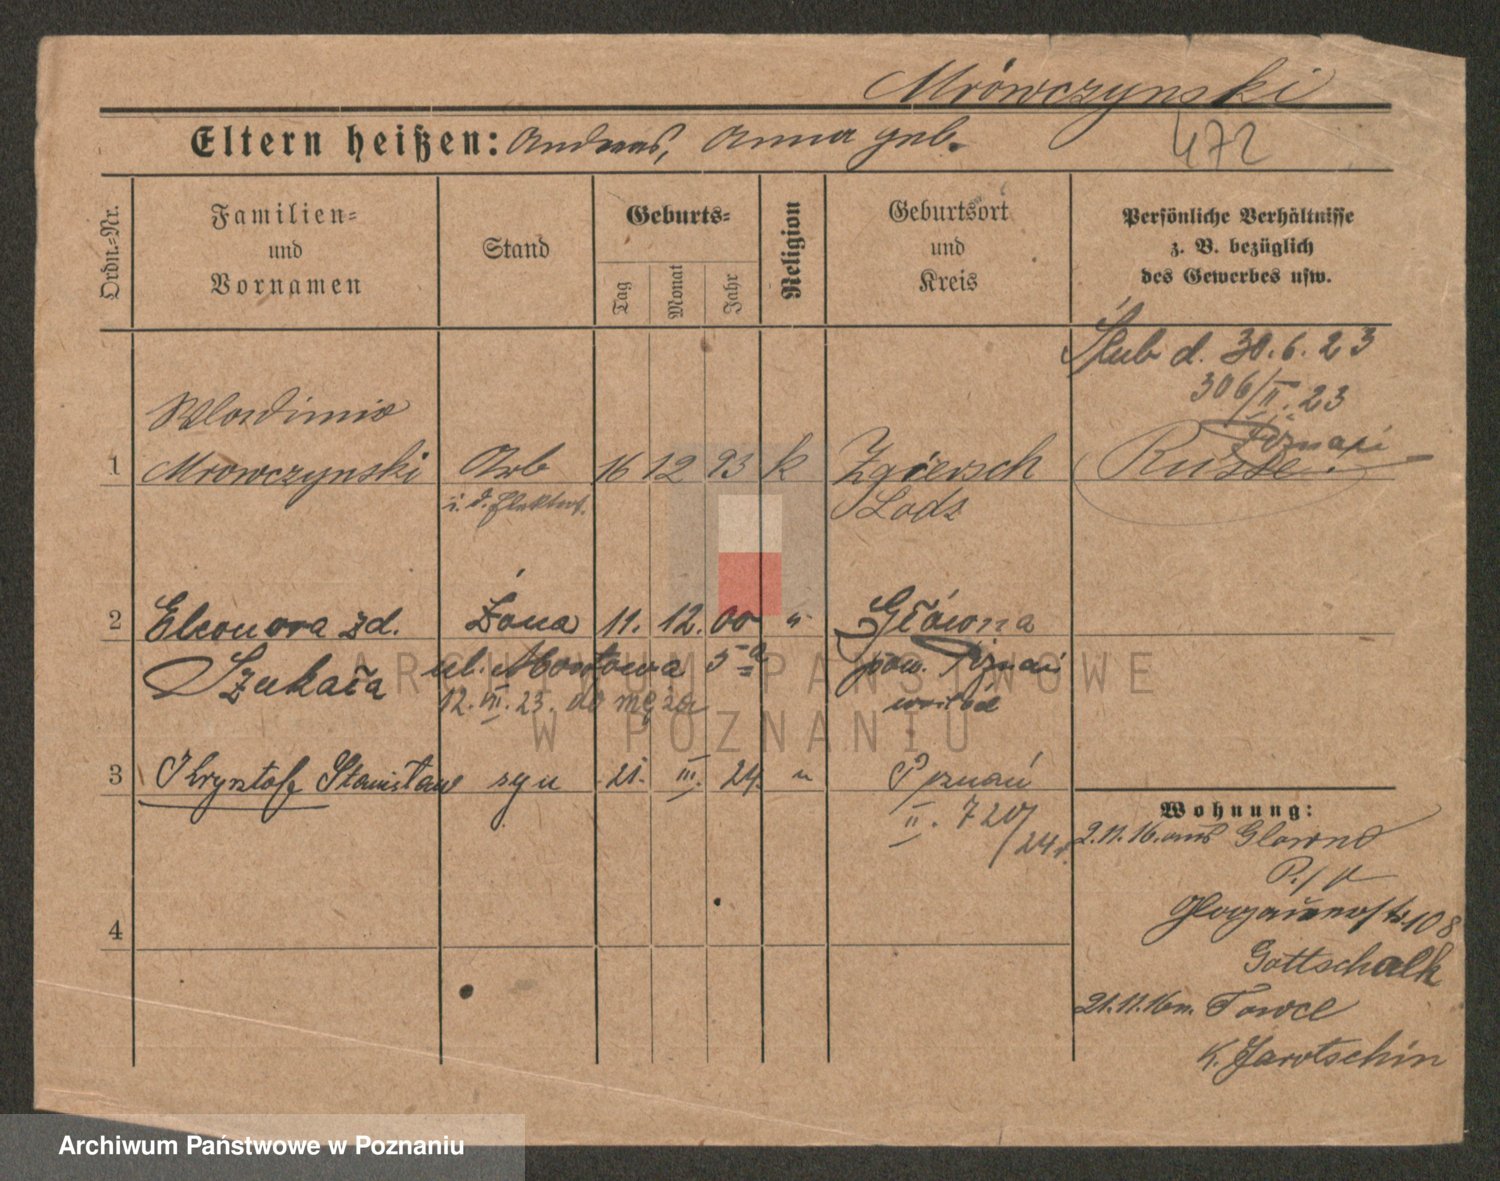 Mrówczynski
Eltern heißen: Andreas, Anna geb.
472
Ordn.=Nr.
Familien=
und
Vornamen
Stand
Geburts=
Tag
Monat
Jahr
Religion
Geburtsort
und
Kreis
Persönliche Verhältnisse
z. B. bezüglich
des Gewerbes usw.
Ślub d. 30.6.23
306/II. 23
Poznań
Wladimir
1 Mrowczynski Arb 16 12 93 k Zgiersch Russe
i. d. Elektrt. Lodz
2 Eleonora zd. Żona 11. 12. 00 " Główna
Szukała ul. Mostowa 5a pow. Poznań
12. VII. 23. do męża wschód
3 Krysztof Stanisław syn 21. III. 24. " Poznań
II. 720/24.
4
Wohnung:
2.11.16. aus Glowno
P./
Glogauerstr. 108
Gottschalk
21.11.16 n.
K. Jarotschin
ARCHIWUM PAŃSTWOWE
W POZNANIU
Archiwum Państwowe w Poznaniu